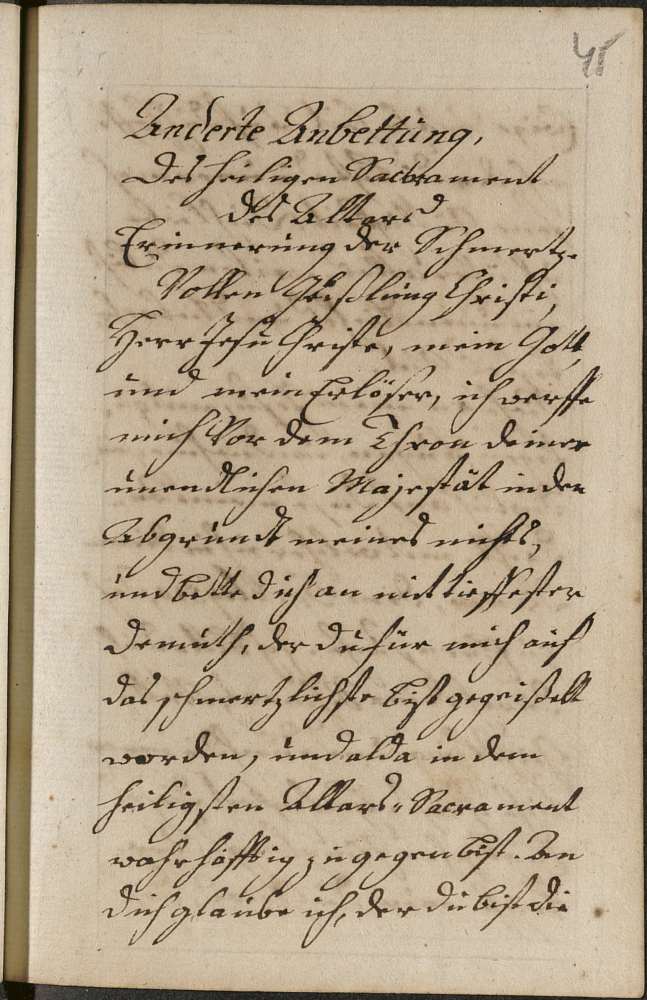 45
Anderte Anbettung,
des heiligen Sacrament
des Altars
Erinnerung der Schmertz-
Vollen Geißlung Christi,
Herr Jesu Christe, mein Gott
und mein Erlöser, ich werffe
mich Vor dem Thron deiner
unendlichen Majestät in den
Abgrundt meines nichts,
und bette dich an mit tieffester
demuth, der du für mich auf
das schmertzlichste bist gegeißelt
worden, und alda in dem
heiligsten Altars-Sacrament
wahrhafftig zugegen bist. An
dich glaube ich, der du bist die